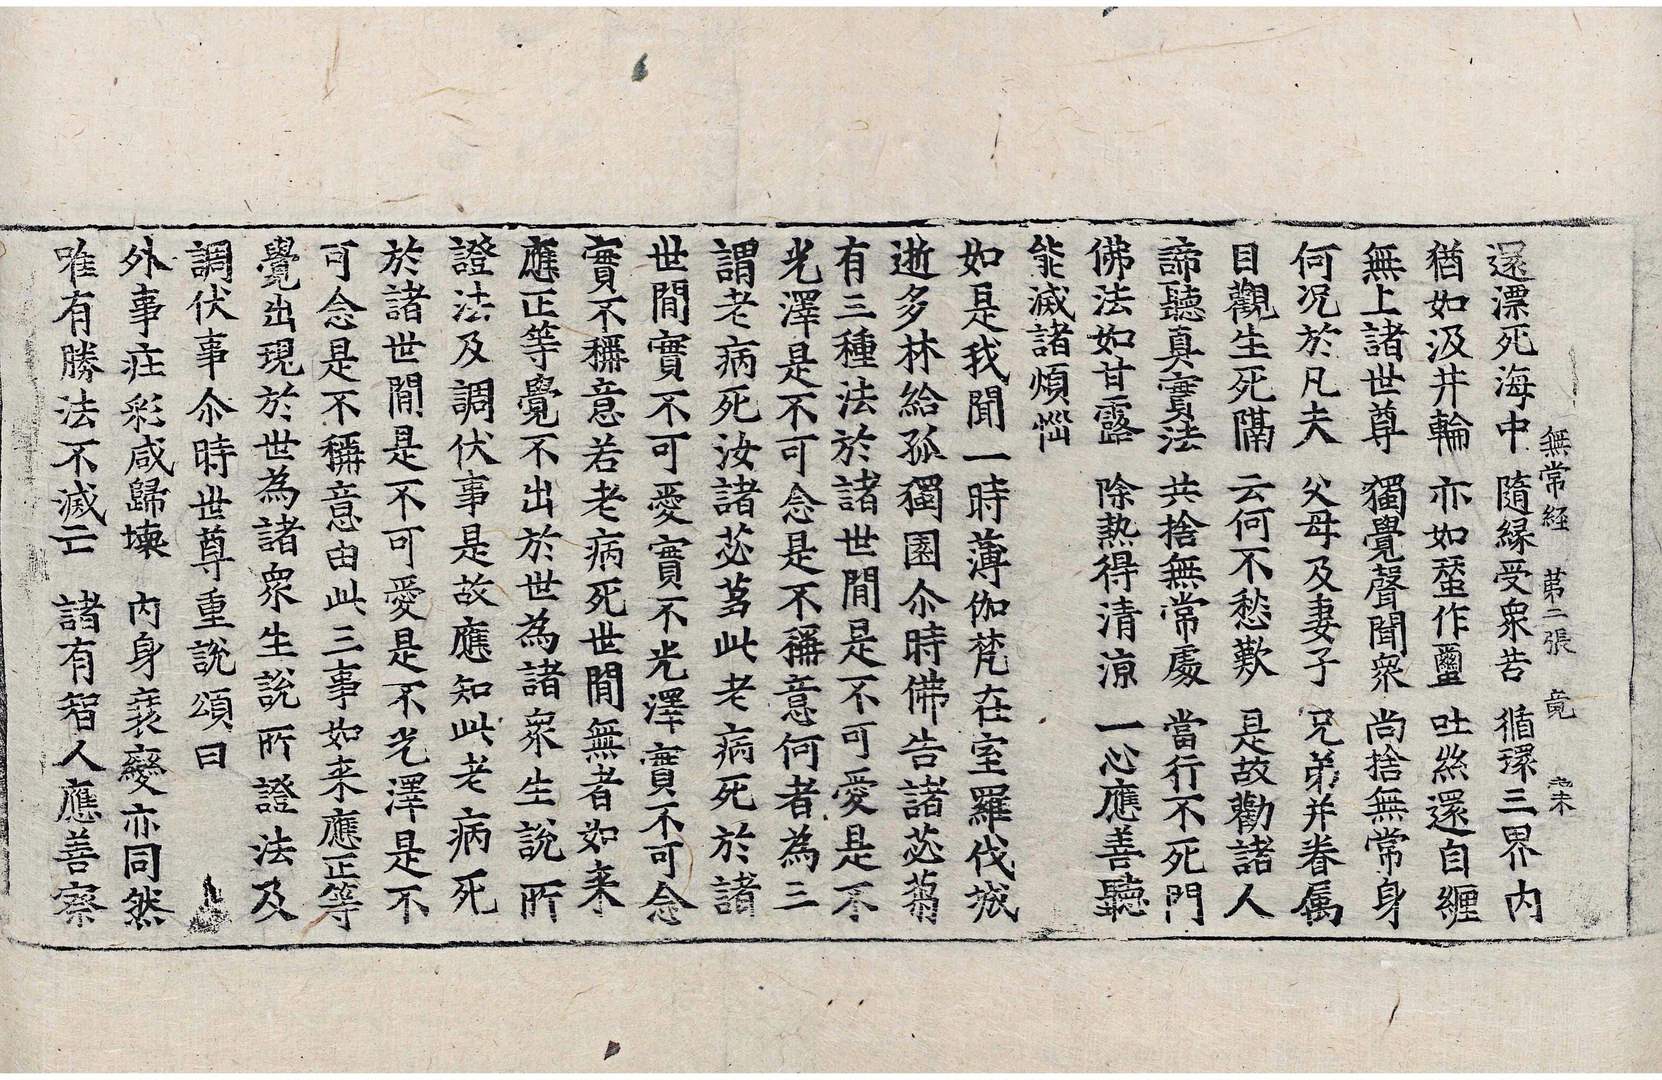 無常経 第二張 竟
還漂死海中 隨縁受衆苦 循環三界内
猶如汲井輪 亦如蚕作䖢 吐絲還自纒
無上諸世尊 獨覺聲聞衆 尚捨無常身
何況於凡夫 父母及妻子 兄弟并眷属
目觀生死隔 云何不愁歎 是故勸諸人
諦聽真實法 共捨無常處 當行不死門
佛法如甘露 除熱得清涼 一心應善聽
能滅諸煩惱
如是我聞一時薄伽梵在室羅伐城
逝多林給孤獨園尒時佛告諸苾蒭
有三種法於諸世間是不可愛是不
光澤是不可念是不稱意何者為三
謂老病死汝諸苾蒭此老病死於諸
世間實不可愛實不光澤實不可念
實不稱意若老病死世間無者如来
應正等覺不出於世為諸衆生說所
證法及調伏事是故應知此老病死
於諸世間是不可愛是不光澤是不
可念是不稱意由此三事如来應正等
覺出現於世為諸衆生說所證法及
調伏事尒時世尊重說頌曰
外事庄彩咸歸壊 内身衰變亦同然
唯有勝法不滅亡 諸有智人應善察